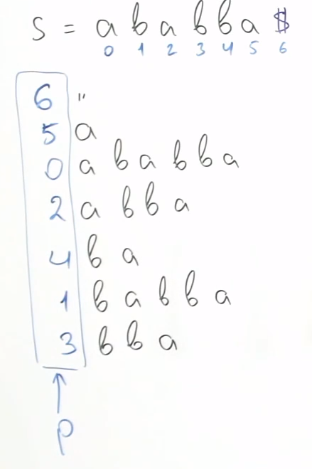 S = a b a b b a $
0 1 2 3 4 5 6
6 "
5 a
0 a b a b b a
2 a b b a
4 b a
1 b a b b a
3 b b a
p